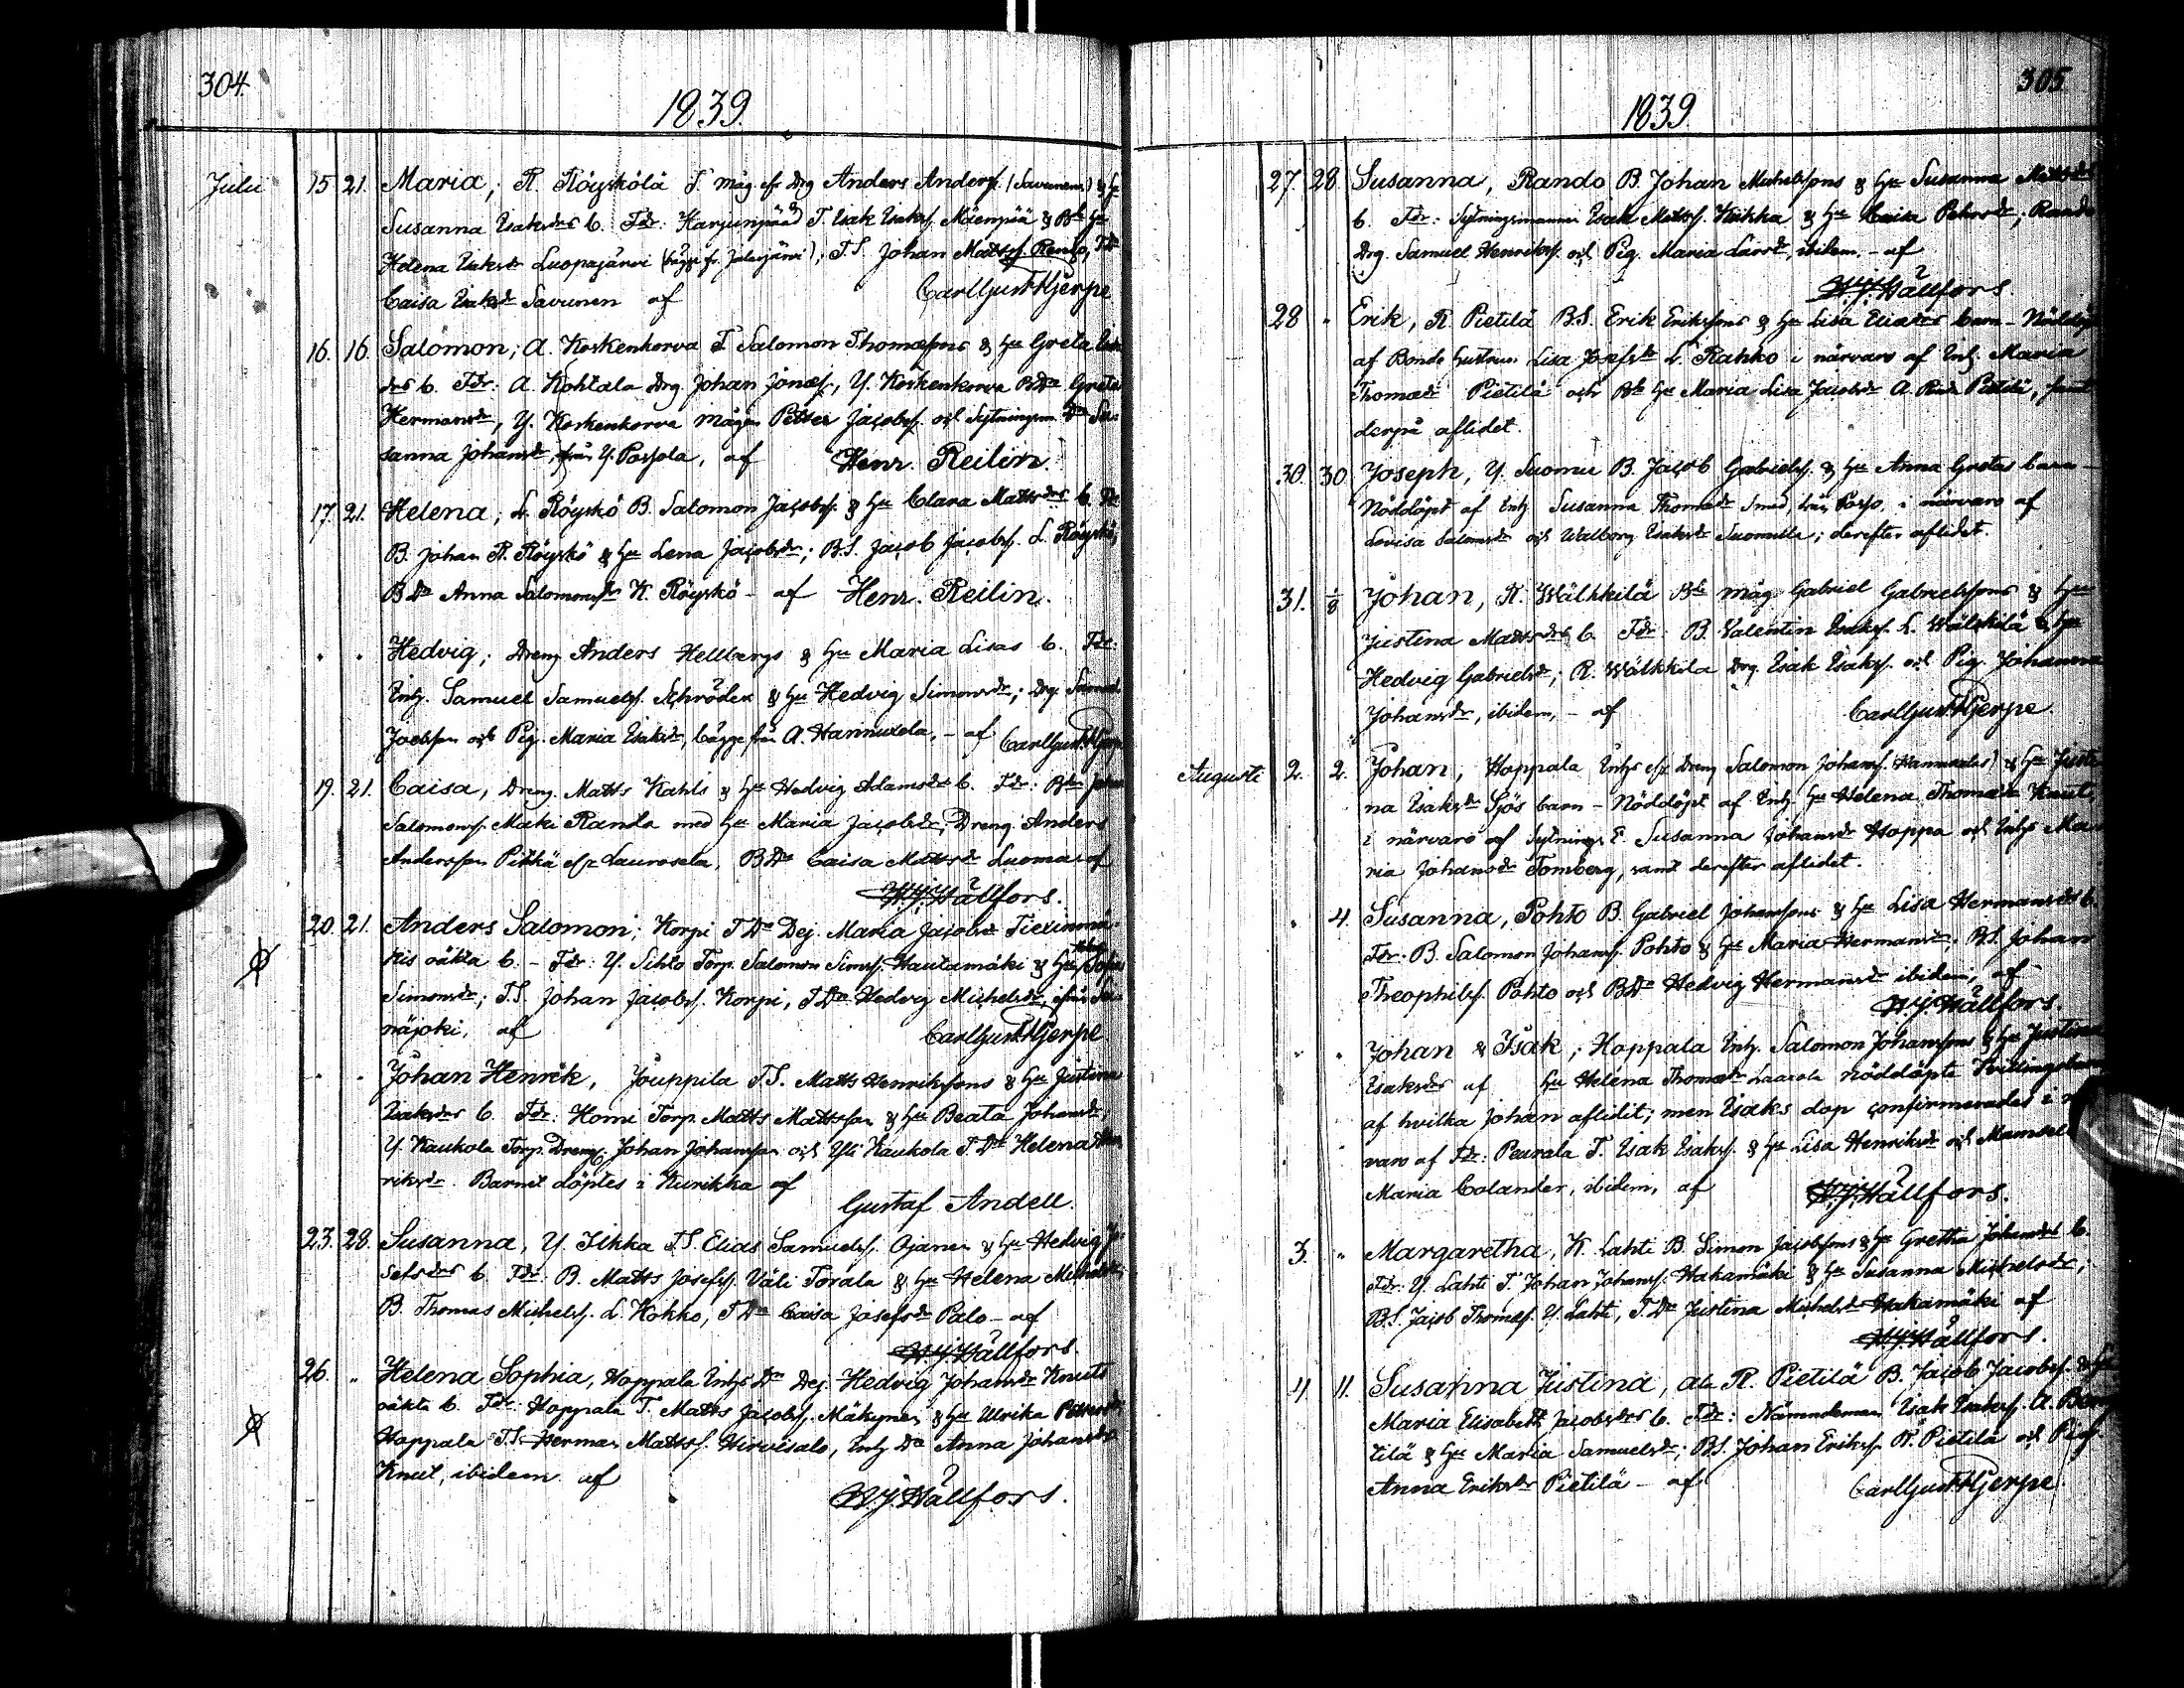 304.
1839.
Julii 15 21. Maria; R. Röyskölä T. måg efr Drg Anders Anderss. (Savunens) & Hu
Susanna Isaksdrs b. Fdr: Karjunpää T. Isak Isakss. Mäenpää & Hu
Helena Isaksdr Luopajärvi (bägge fr. Jalasjärvi), T.S. Johan Mattss. Renko, TDr
Caisa Isaksdr Savunen af CarlGustHjerpe
16. 16. Salomon; A. Koskenkorva T. Salomon Thomæsons & Hu Greta Isak
drs b. Fdr: A. Kohtala Drg. Johan Jonæss., Y. Koskenkorva BDr Greta
Hermansdr, Y. Koskenkorva mågen Petter Jacobss. och Sytningsm. Dr Su-
sanna Johansdr, från Y. Passola, af Henr. Reilin.
17. 21. Helena; L. Röyskö B. Salomon Jacobss. & Hu Clara Mattsdrs b. Fdr
B. Johan R. Röyskö & Hu Lena Jacobsdr; B.S. Jacob Jacobss. L. Röyskö,
BDr Anna Salomonsdr K. Röyskö – af Henr. Reilin.
" " Hedvig; Dreng Anders Hellbergs & Hu Maria Lisas b. Fdr:
Inh. Samuel Samuelss. Schröder & Hu Hedvig Simonsdr; Drg. Samuel
Joelsson och Pig. Maria Isaksdr, bägge från A. Hannuxela, – af CarlGustHjerpe
19. 21. Caisa, Dreng. Matts Kahls & Hu Hedvig Adamsdrs b. Fdr: Bdn Johan
Salomonss. Maki Randa med Hu Maria Jacobsdr, Dreng Anders
Andersson Pitkä efr Laurosela, BDr Caisa Mattsdr Luoma af
W.J.Hällfors.
20. 21. Anders Salomon; Korpi TDr Dej. Maria Jacobsdr Tiexinmä-
kis oäkta b. – Fdr: Y. Sihto Torp. Salomon Simss. Hautamäki & Hu Sofia
Simonsdr; T.S. Johan Jacobss. Korpi, TDr Hedvig Michelsdr, ifrån Sei-
näjoki, af CarlGustHjerpe
" " Johan Henrik, Jouppila T.S. Matts Henrikssons & Hu Justina
Isaksdrs b. Fdr: Homi Torp. Matts Mattsson & Hu Beata Johansdr
Y. Kaukola Torp. Dreng Johan Johansson och Yli Kaukola T.Dr Helena Hen
riksdr. Barnet döptes i Kurikka af
Gustaf Andell.
23. 28. Susanna, Y. Ilkka T.S. Elias Samuelss. Ojanen & Hu Hedvig Jo-
sefsdrs b. Fdr: B. Matts Josefss. Väli Torala & Hu Helena Michelsdr
B. Thomas Michelss. L. Kokko, TDr Caisa Josefsdr Palo – af
W.J.Hällfors.
26. " Helena Sophia, Hoppala Inhs Dr Dej. Hedvig Johansdr Knuts
oäkta b. Fdr: Hoppala T. Matts Jacobss. Mäkynen & Hu Ulrika Pettersdr
Hoppala T.S. Herman Mattss. Hirvisalo, Inh. Dr Anna Johansdr
Knut, ibidem af
W.J.Hällfors.
305
1839
27. 28. Susanna, Rando B. Johan Michelssons & Hu Susanna Mattsdrs
b. Fdr: Sytningsmannen Isak Mattss. Krikka & Hu Caisa Petersdr; Rando
Drg. Samuel Henrikss. och Pig. Maria Larsdr, ibidem, – af
W.J.Hällfors.
28 " Erik, R. Pietilä B.S. Erik Erikssons & Hu Lisa Eliædrs barn – Nöddöpt
af Bonde hustrun Lisa Josefsdr L. Rahko i närvaro af Inh. Maria
Thomædr Pietilä och Bde Hu Maria Lisa Jacobsdr A. Pietilä, samt
derpå aflidet.
30. 30 Joseph, Y. Suomu B. Jacob Gabrielss. & Hu Anna Gretas barn –
Nöddöpt af Inh. Susanna Thomædr Smed från Porso i närvaro af
Lovisa Salomsdr och Walborg Isaksdr Suomulle; derefter aflidet.
31. 1/8 Johan, R. Wälkkilä Bde måg Gabriel Gabrielssons & Hu
Justina Mattsdrs b. Fdr: B. Valentin Isakss. L. Wälkkilä & Hu
Hedvig Gabrielsdr; R. Wälkkila Drg. Isak Isakss. och Pig. Johanna
Johansdr, ibidem, – af CarlGustHjerpe.
Augusti 2. 2. Johan, Hoppala Inhs efr Dreng Salomon Johanss. (Hannuxelas) & Hu Justi-
na Isaksdr Sjös barn – Nöddöpt af Inh. Hu Helena Thomædr Knut,
i närvaro af Sytnings E. Susanna Johansdr Hoppa och Inhs Ma-
ria Johansdr Tomberg, samt derefter aflidet.
" 4. Susanna, Pohto B. Gabriel Johanssons & Hu Lisa Hermansdrs b.
Fdr: B. Salomon Johanss. Pohto & Hu Maria Hermansdr. B.S. Johan
Theophilss. Pohto och BDr Hedvig Hermansdr ibidem; af
W.J.Hällfors.
" " Johan & Isak; Hoppala Inh. Salomon Johanssons & Hu Justina
Isaksdrs af Hu Helena Thomædr Laarola nöddöpte Tvillingebarn
af hvilka Johan aflidit; men Isaks dop confirmerades i när
varo af Fdr: Peurala T. Isak Isakss. & Hu Lisa Henriksdr och Mamsell
Maria Colander, ibidem, af W.J.Hällfors.
3. " Margaretha, K. Lahti B. Simon Jacobssons & Hu Gretha Johansdrs b.
Fdr: Y. Lahti T. Johan Johanss. Hakamäki & Hu Susanna Michelsdr;
B.S. Jacob Thomæss. Y. Lahti, T.Dr Justina Michelsdr Hakamäki af
W.J.Hällfors.
4. 11. Susanna Justina, Ala R. Pietilä B. Jacob Jacobss. & Hu
Maria Elisabeth Jacobsdrs b. Fdr: Nämndeman Isak Isakss. A.
tilä & Hu Maria Samuelsdr; B.S. Johan Erikss. R. Pietilä och Pig.
Anna Eriksdr Pietilä – af CarlGustHjerpe